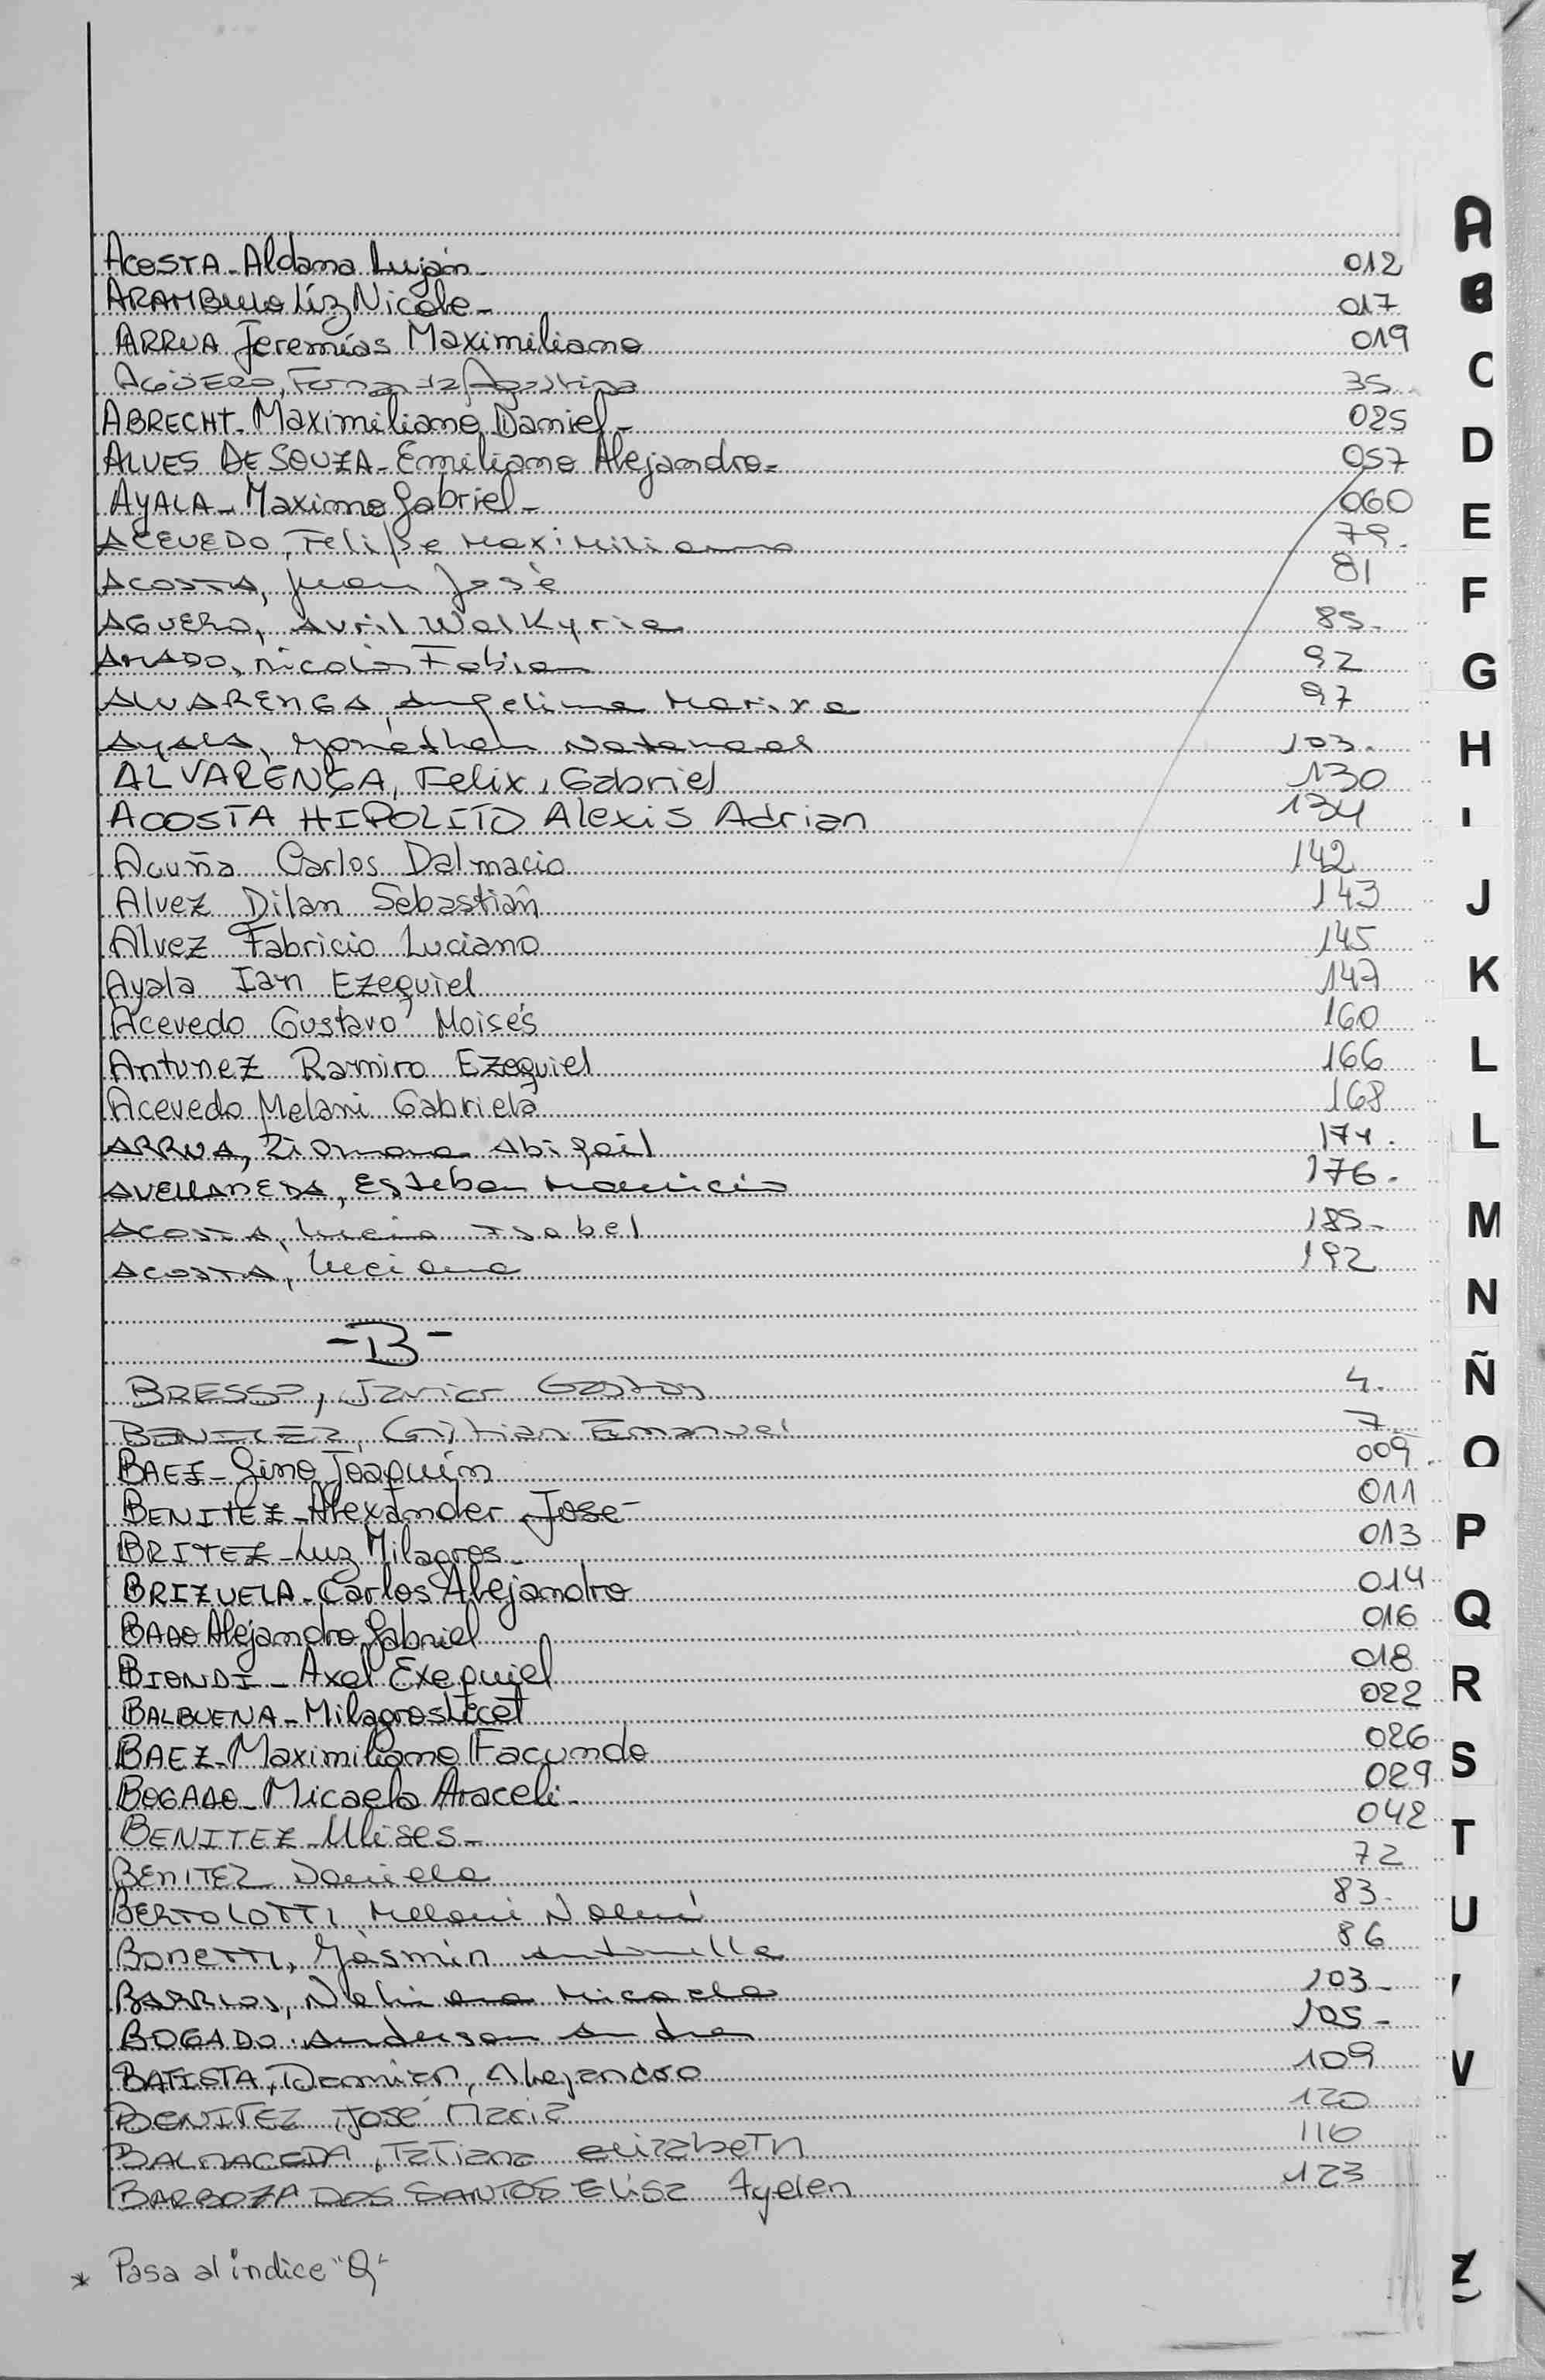 ACOSTA - Aldana Luján - 012
ARAMBULO Líz Nicole - 017
ARRUA Jeremías Maximiliano 019
AGÜERO, Agostina 35
ABRECHT - Maximiliano Daniel - 025
ALVES DE SOUZA - Emiliano Alejandro - 057
AYALA - Maximo Gabriel - 060
ACEVEDO, Felipe Maximiliano 79.
ACOSTA, Juan José 81
AGUERO, Avril Walkyria 85.
AMADO, Nicolás Fabian 92
ALVARENGA, Angelina Marixa 97
AYALA, Yonathan Natanael 103.
ALVARENGA, Felix, Gabriel 130
ACOSTA HIPOLITO Alexis Adrian 134
Acuña Carlos Dalmacio 142
Alvez Dilan Sebastián 143
Alvez Fabricio Luciano 145
Ayala Ian Ezequiel 147
Acevedo Gustavo Moisés 160
Antunez Ramiro Ezequiel 166
Acevedo Melani Gabriela 168
ARRUA, Ziomara Abigail 174.
AVELLANEDA, Esteban Mauricio 176.
ACOSTA, Lucia Isabel 185.
ACOSTA, Luciana 192
- B -
BRESSO, Javier Gaston 4.
BENITEZ, Cristian Emanuel 7.
BAEZ - Gino Joaquín 009
BENITEZ - Alexander José - 011
BRITEZ - Luz Milagros - 013
BRIZUELA - Carlos Alejandro 014
BADO Alejandro Gabriel 016
BIONDI - Axel Exequiel 018
BALBUENA - Milagros Licet 022
BAEZ - Maximiliano Facundo 026
BOGADO - Micaela Araceli - 029
BENITEZ - Ulises - 042
BENITEZ Daniela 72
BERTOLOTTI Melani Noemí 83.
BONETTI, Yasmín Antonella 86
BARRIOS, Micaela 103-
BOGADO Anderson 105-
BATISTA, Damian, Alejandro 109
BENITEZ, José Maria 120
BALMACEDA, Tatiana elizabeth 116
BARBOZA DOS SANTOS Elisa Ayelen 123
* Pasa al índice "Q"
A
B
C
D
E
F
G
H
I
J
K
L
L
M
N
Ñ
O
P
Q
R
S
T
U
V
Z